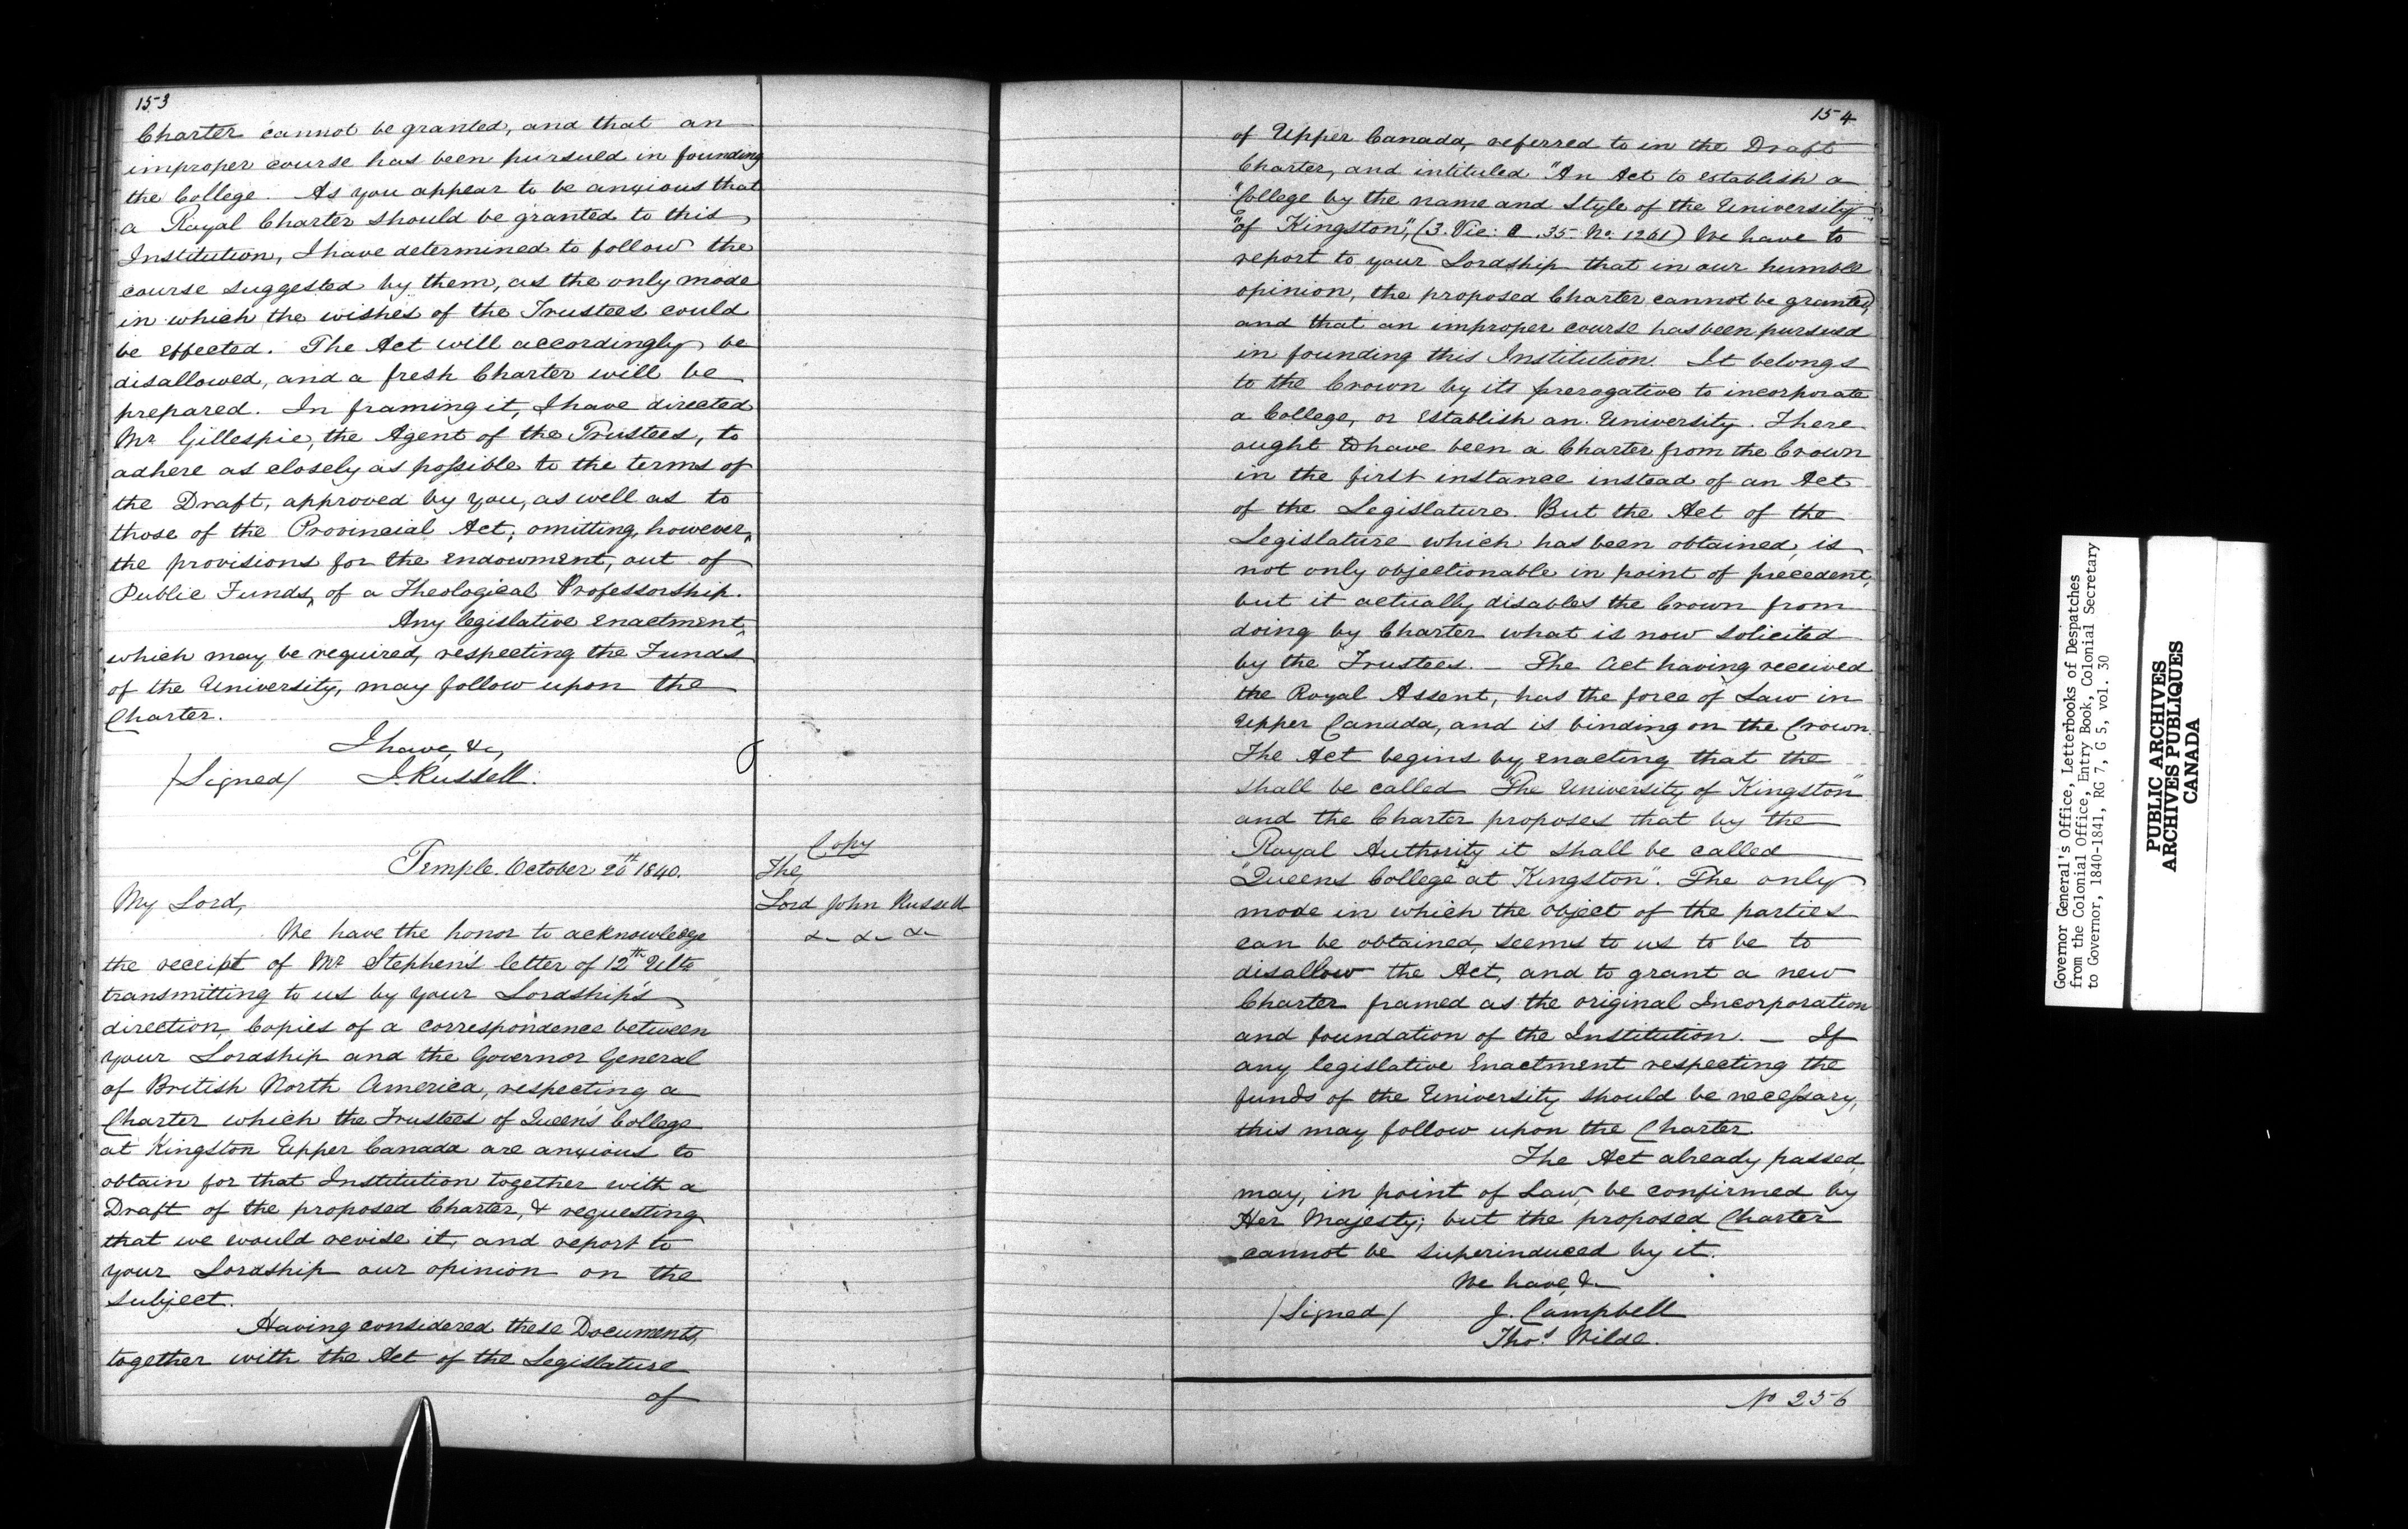 153
Charter cannot be granted, and that an
improper course has been pursued in founding
the College. As you appear to be anxious that
a Royal Charter should be granted to this
Institution, I have determined to follow the
course suggested by them, as the only mode
in which the wishes of the Trustees could
be effected. The Act will accordingly be
disallowed, and a fresh Charter will be
prepared. In framing it, I have directed
Mr Gillespie, the Agent of the Trustees, to
adhere as closely as possible to the terms of
the Draft, approved by you, as well as to
those of the Provincial Act; omitting, however,
the provisions for the endowment, out of
Public Funds, of a Theological Professorship.
Any legislative enactment,
which may be required, respecting the Funds
of the University, may follow upon the
Charter.
I have, &c,
/Signed/ J. Russell.
Copy
Temple. October 20th 1840.
The
Lord John Russell
&c &c &c
My Lord,
We have the honor to acknowledge
the receipt of Mr Stephen's letter of 12th Ulto
transmitting to us by your Lordship's
direction, Copies of a correspondence between
your Lordship and the Governor General
of British North America, respecting a
Charter which the Trustees of Queen's College
at Kingston Upper Canada are anxious to
obtain for that Institution together with a
Draft of the proposed Charter, & requesting
that we would revise it, and report to
your Lordship our opinion on the
subject.
Having considered these Documents,
together with the Act of the Legislature
of
154
of Upper Canada, referred to in the Draft
Charter, and intituled "An Act to establish a
"College by the name and Style of the University
"of Kingston", (3. Vic: C. 35. No. 1261) We have to
report to your Lordship that in our humble
opinion, the proposed Charter cannot be granted,
and that an improper course has been pursued
in founding this Institution. It belongs
to the Crown by its prerogative to incorporate
a College, or establish an University. There
ought to have been a Charter from the Crown
in the first instance instead of an Act
of the Legislature. But the Act of the
Legislature which has been obtained, is
not only objectionable in point of precedent,
but it actually disables the Crown from
doing by Charter what is now solicited
by the Trustees. — The Act having received
the Royal Assent, has the force of Law in
Upper Canada, and is binding on the Crown.
The Act begins by enacting that the
shall be called "The University of Kingston"
and the Charter proposes that by the
Royal Authority it shall be called
"Queens College at Kingston". The only
mode in which the object of the parties
can be obtained, seems to us to be to
disallow the Act, and to grant a new
Charter framed as the original Incorporation
and foundation of the Institution. — If
any legislative Enactment respecting the
funds of the University should be necessary,
this may follow upon the Charter.
The Act already passed,
may, in point of Law, be confirmed by
Her Majesty; but the proposed Charter
cannot be superinduced by it.
We have, &c
/Signed/ J. Campbell
Thos. Wilde.
No 256
Governor General's Office, Letterbooks of Despatches
from the Colonial Office, Entry Book, Colonial Secretary
to Governor, 1840-1841, RG 7, G 5, vol. 30
PUBLIC ARCHIVES
ARCHIVES PUBLIQUES
CANADA